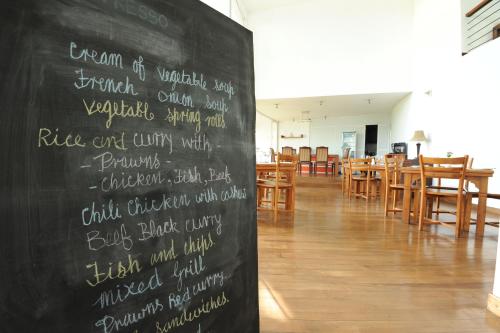 ESPRESSO
Cream of vegetable soup
French Onion soup
Vegetable spring rolls.
Rice and curry with -
- Prawns -
- chicken, Fish, Beef
Chili Chicken with cashews
Beef Black curry
Fish and chips
Mixed Grill
Prawns Red curry...
Sandwiches.